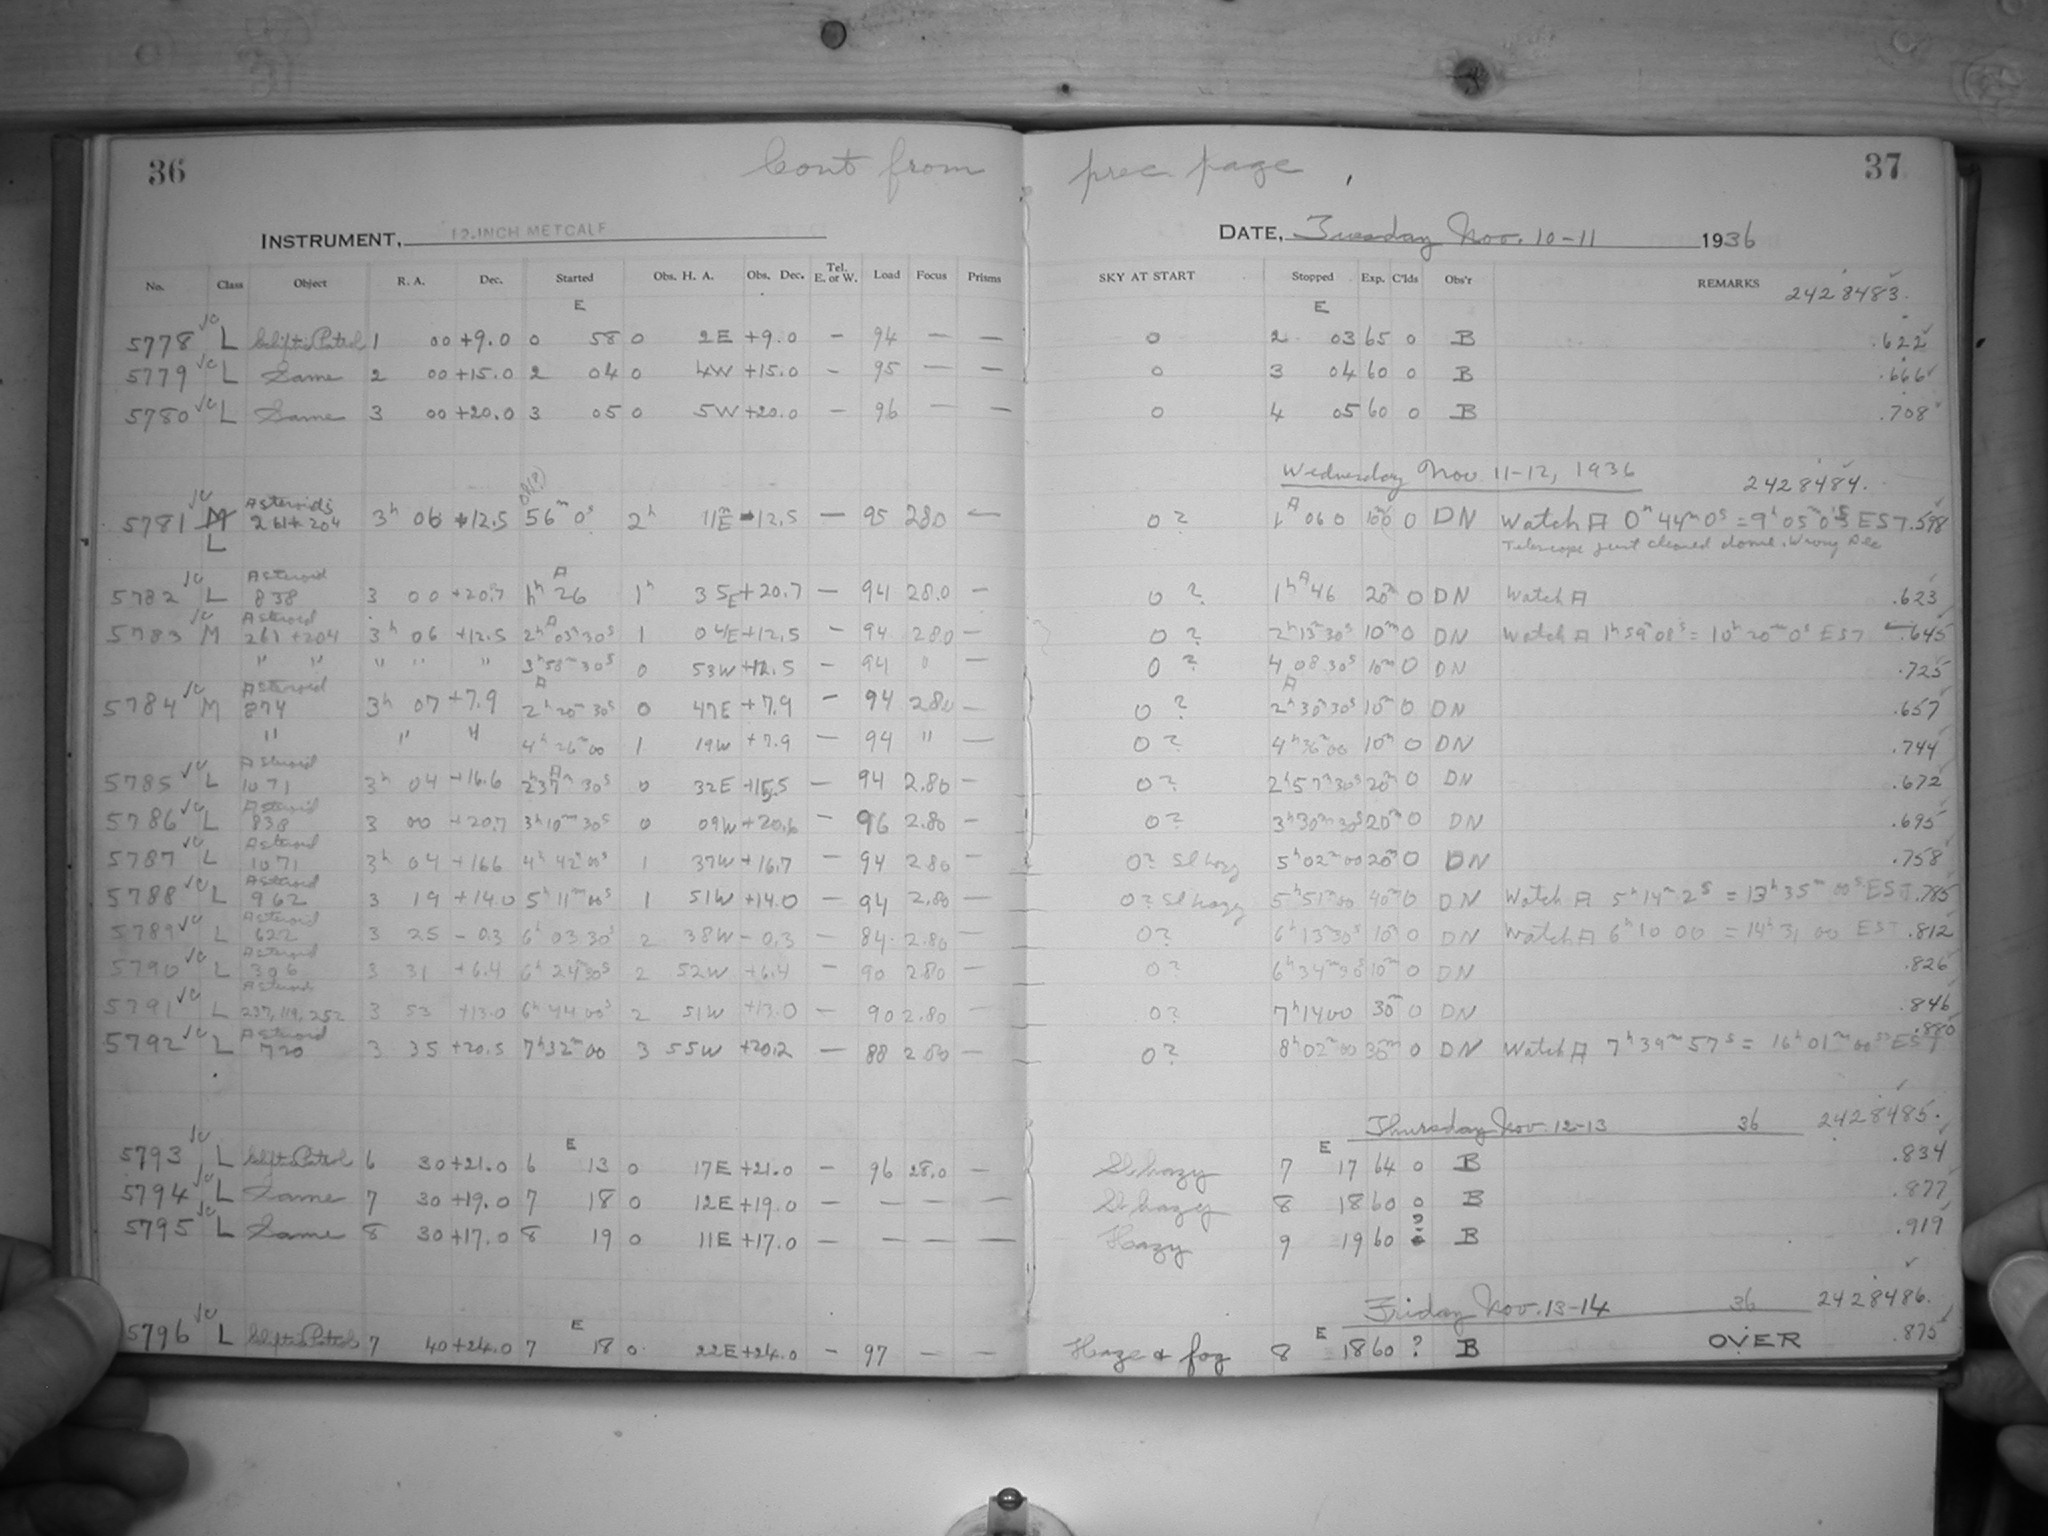 36 Cont from prec page 37
INSTRUMENT, 12-INCH METCALF DATE, Tuesday Nov. 10-11 1936
No. Class Object R. A. Dec. Started Obs. H. A. Obs. Dec. Tel. E. or W. Load Focus Prisms SKY AT START Stopped Exp. C'lds Obs'r REMARKS 2428483.
E E
5778 L Patrol 1 00 +9.0 0 58 0 2E +9.0 – 94 — — 0 2 03 65 0 B .622
5779 L Same 2 00 +15.0 2 04 0 4W +15.0 – 95 — — 0 3 04 60 0 B .666
5780 L Same 3 00 +20.0 3 05 0 5W +20.0 – 96 — — 0 4 05 60 0 B .708
Wednesday Nov 11-12, 1936 2428484.
Asteroids
5781 M 261+204 3h 06 +12.5 56m 0s 2h 11E 12.5 — 95 280 — 0? 1 06 0 10m 0 DN Watch A 0h 44m 0s = 9h 05m EST .598
L Telescope just cleared dome. Wrong Dec
Asteroid
5782 L 838 3 00 +20.7 1h 26 1h 35E +20.7 — 94 28.0 — 0? 1h 46 20m 0 DN Watch A .623
Asteroid
5783 M 261+204 3h 06 +12.5 2h 03m 30s 1 04E +12.5 – 94 280 — 0? 2h 13m 30s 10m 0 DN Watch A 1h 59m 08s = 10h 20m 0s EST .645
" " " " " 3h 58m 30s 0 53W +12.5 – 94 — 0? 4 08 30s 10m 0 DN .725
Asteroid
5784 M 874 3h 07 +7.9 2h 20m 30s 0 47E +7.9 – 94 280 — 0? 2h 30m 30s 10m 0 DN .657
" " " 4h 26m 00 1 19W +7.9 — 94 " — 0? 4h 36m 00 10m 0 DN .744
Asteroid
5785 L 1071 3h 04 +16.6 2h 37m 30s 0 32E +15.5 — 94 2.80 — 0? 2h 57m 30s 20m 0 DN .672
Asteroid
5786 L 838 3 00 +20.7 3h 10m 30s 0 09W +20.6 – 96 2.80 – 0? 3h 30m 30s 20m 0 DN .695
Asteroid
5787 L 1071 3h 04 +166 4h 42m 00s 1 37W +16.7 — 94 280 — 0? Sl hazy 5h 02m 00 20m 0 DN .758
Asteroid
5788 L 962 3 19 +14.0 5h 11m 00s 1 51W +14.0 — 94 2.80 — 0? Sl hazy 5h 51m 00 40m 0 DN Watch A 5h 14m 2s = 13h 35m 00s EST .785
Asteroid
5789 L 622 3 25 – 0.3 6h 03 30s 2 38W – 0.3 – 84 2.80 — 0? 6h 13m 30s 10m 0 DN Watch A 6h 10 00 = 14h 31 00 EST .812
Asteroid
5790 L 396 3 31 +6.4 6h 24m 30s 2 52W +6.4 — 90 280 — 0? 6h 34m 30s 10m 0 DN .826
Asteroids
5791 L 237, 119, 252 3 53 +13.0 6h 44 00s 2 51W +13.0 — 90 2.80 — 0? 7h 14 00 30m 0 DN .846
Asteroid .880
5792 L 720 3 35 +20.5 7h 32m 00 3 55W +20.2 — 88 280 — 0? 8h 02m 00 30m 0 DN Watch A 7h 39m 57s = 16h 01m 00s EST
Thursday Nov. 12-13 36 2428485.
E E
5793 L Patrol 6 30 +21.0 6 13 0 17E +21.0 – 96 28.0 — Sl hazy 7 17 64 0 B .834
5794 L Same 7 30 +19.0 7 18 0 12E +19.0 – — — — Sl hazy 8 18 60 0 B .877
5795 L Same 8 30 +17.0 8 19 0 11E +17.0 — — — — Hazy 9 19 60 ? B .919
Friday Nov. 13-14 36 2428486.
E E
5796 L Patrol 7 40 +24.0 7 18 0 22E +24.0 – 97 — — Haze & fog 8 18 60 ? B OVER .875